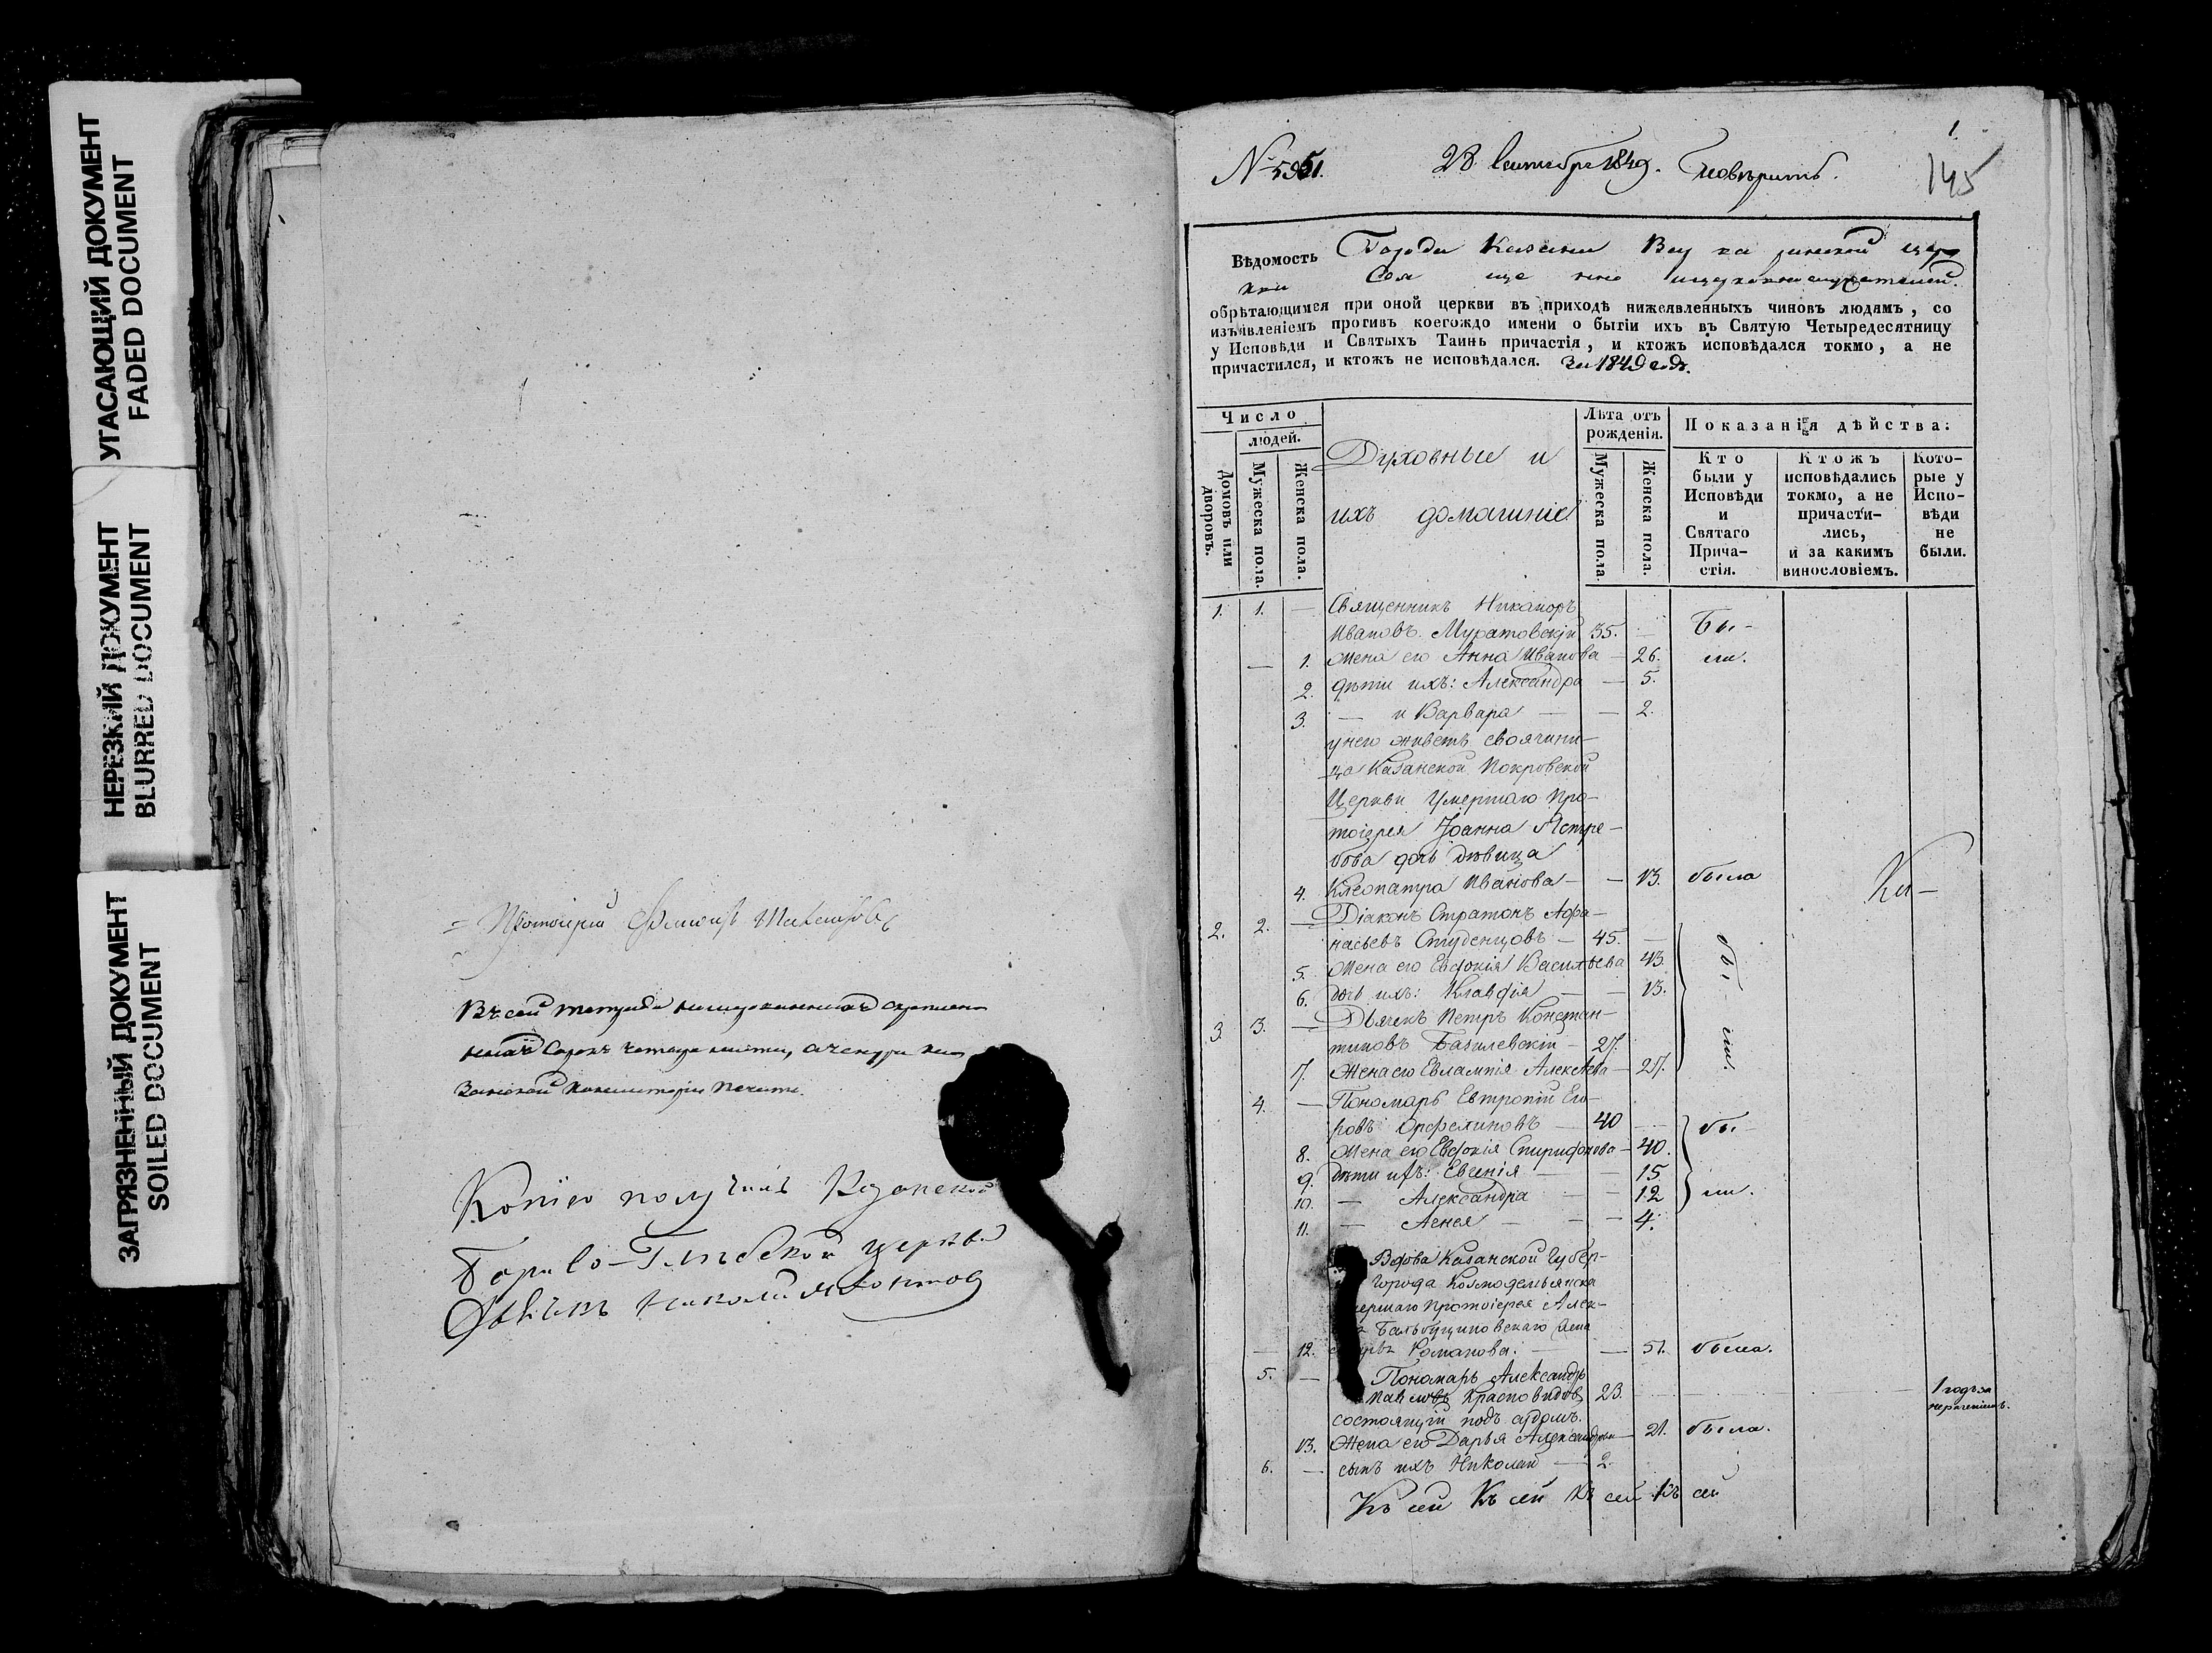 УГАСАЮЩИЙ ДОКУМЕНТ
FADED DOCUMENT
НЕРЕЗКИЙ ДОКУМЕНТ
BLURRED DOCUMENT
ЗАГРЯЗНЕННЫЙ ДОКУМЕНТ
SOILED DOCUMENT
Протоіерей
Въ сей тетради
листа, а чекург
Консисторіи печати.
Копію получилъ Казанской
Борисо-Глѣбской церкви
Николай
№ 5951.
28 Сентября 1849. Повѣрить.
1.
145
Вѣдомость Города Казани церк
кви Свя ще нно ицерковнослужителей.
обрѣтающимся при оной церкви въ приходѣ нижеявленныхъ чиновъ людямъ, со
изъявленіемъ противъ коегождо имени о бытіи ихъ въ Святую Четыредесятницу
у Исповѣди и Святыхъ Таинъ причастія, и ктожъ исповѣдался токмо, а не
причастился, и ктожъ не исповѣдался. За 1849 годъ.
Число
людей.
Домовъ или дворовъ.
Мужеска пола.
Женска пола.
Духовные и
ихъ домашніе
Лѣта отъ
рожденія.
Мужеска пола
Женска пола.
Показанія дѣйства:
Кто
были у
Исповѣди
и
Святаго
Прича-
стія.
Ктожъ
исповѣдались
токмо, а не
причасти-
лись,
и за какимъ
винословіемъ.
Кото-
рые у
Испо-
вѣди
не
были.
1. 1. — Священникъ Никаноръ
Ивановъ Муратовскій 35. — Бы-
— 1. Жена его Анна Иванова — 26. ли.
2. Дѣти ихъ: Александра — 5.
3. — и Варвара — — 2.
у него живетъ своячини-
ца Казанской Покровской
Церкви умершаго Про-
тоіерея Іоанна Ястре-
бова дочь дѣвица
4. Клеопатра Иванова — — 13. была
Ка-
2. 2. — Діаконъ Стратонъ Афа-
насьевъ Студенцовъ — 45. —
5. Жена его Евдокія Васильева 43. бы-
6. дочь ихъ: Клавдія — — 13.
3. 3. — Дьячекъ Петръ Констан-
тиновъ Базилевскій — 27. ли.
7. Жена его Евлампія Алексѣева — 27.
4. — Пономарь Евтропій Его-
ровъ Орфелиновъ — 40 — бы-
8. Жена его Евдокія Спиридонова — 40.
9. Дѣти ихъ: Евгенія — — 15
10. — Александра — — 12 ли.
11. — Агнея — — — 4.
Вдова Казанской Губер-
города Козмодемьянска
мершаго Протоіерея Алек-
— 12. Романова. — — 51. была.
5. — Пономарь Александръ
Павловъ Красновидовъ 23. 1 годъ за
состоящій подъ судомъ. нераченіемъ.
13. Жена его Дарья Александрова — 21. была.
6. — сынъ ихъ Николай — 2.
Къ сей Къ сей Къ сей Къ сей